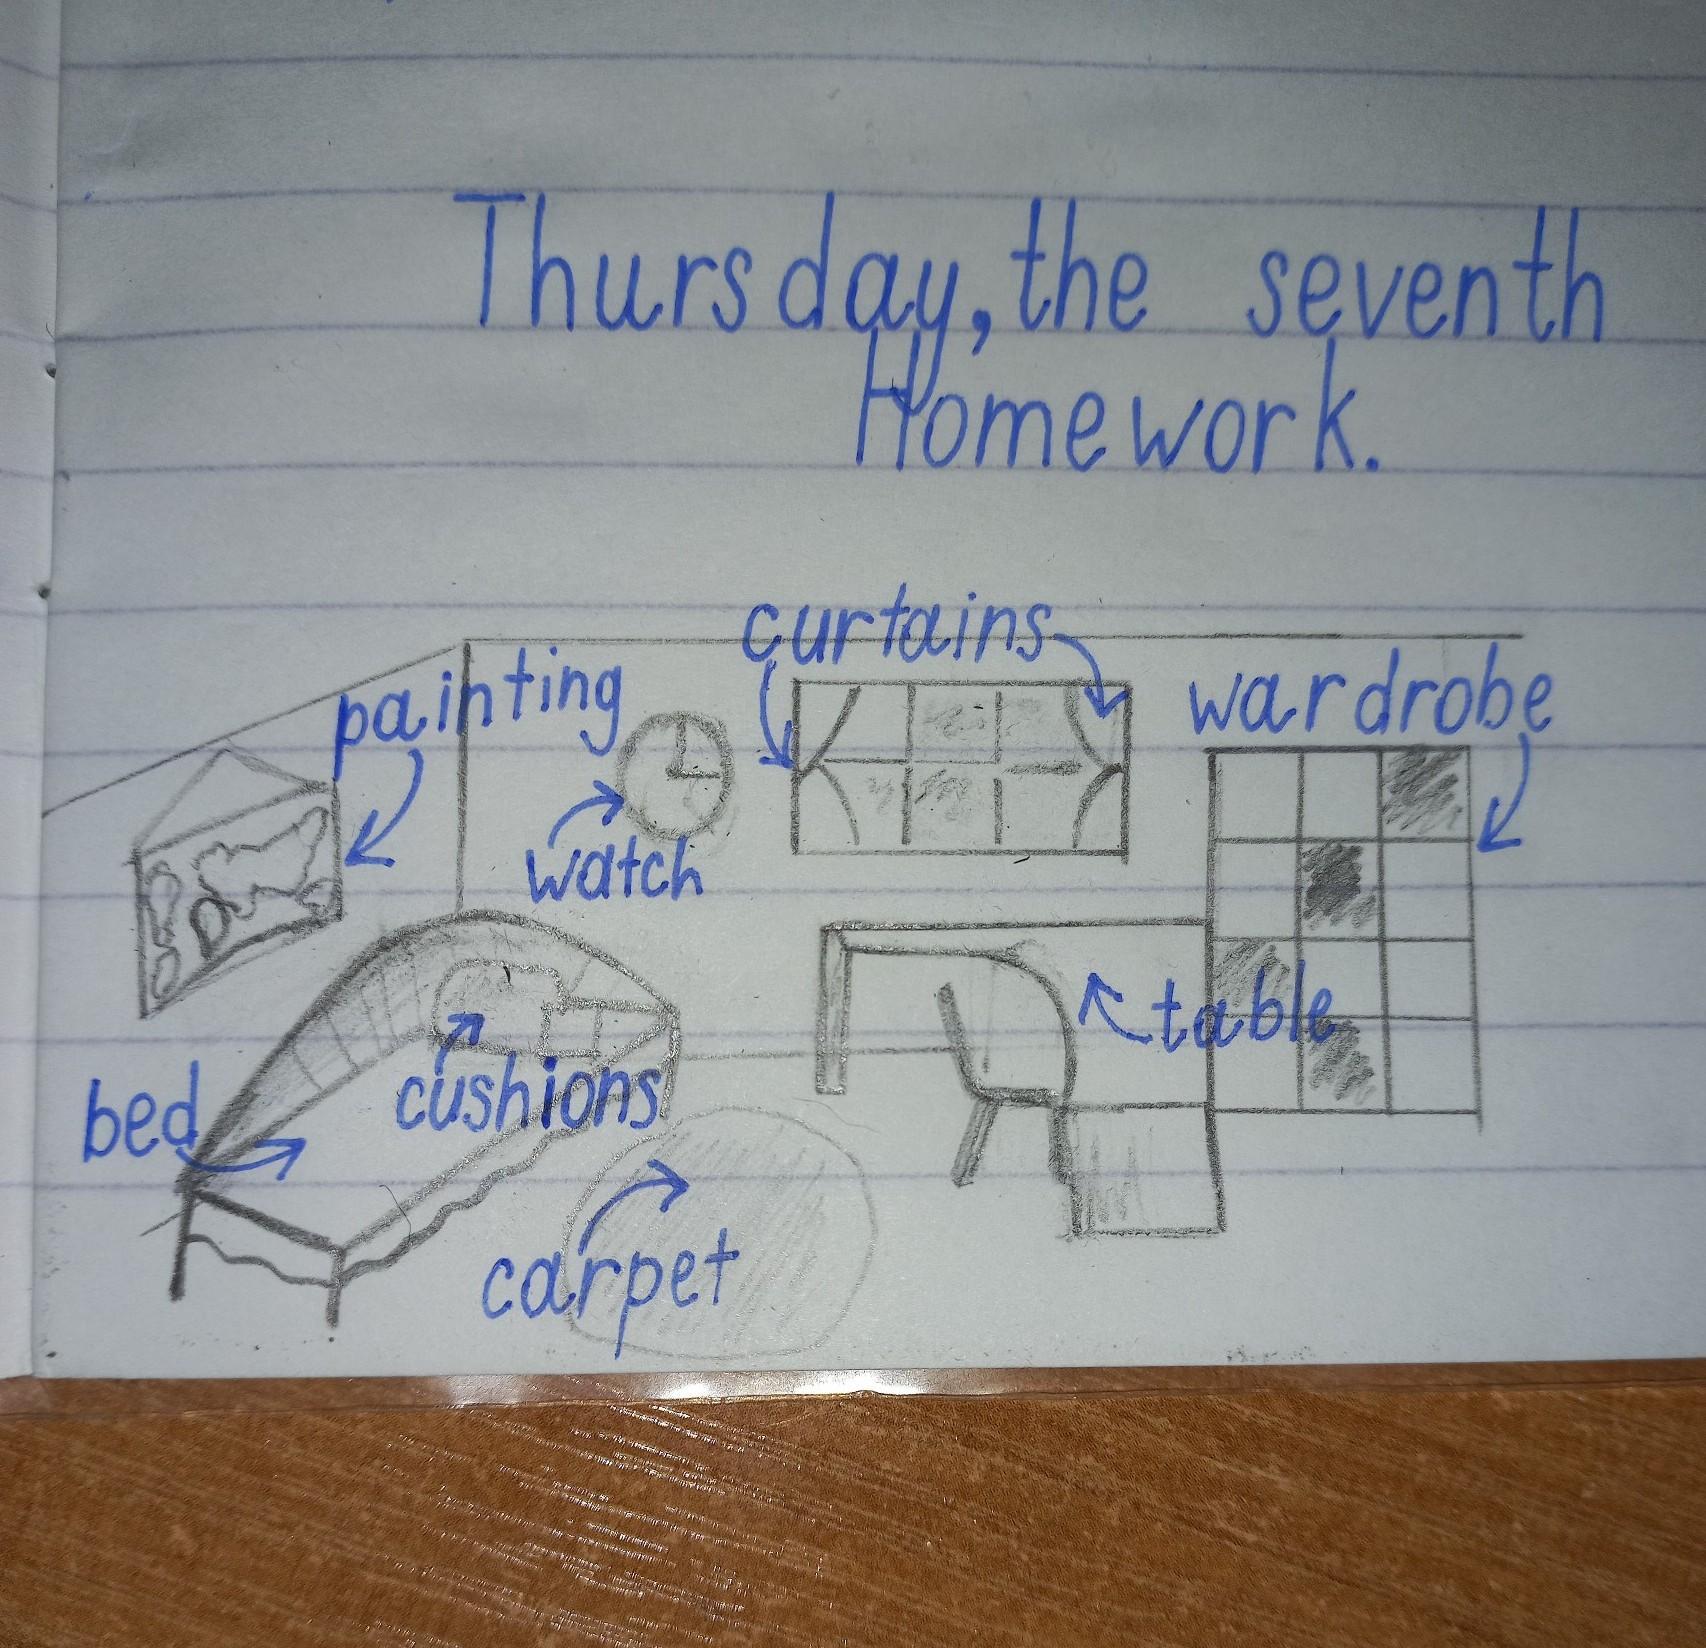 Thursday, the seventh
Homework.
curtains
painting
wardrobe
watch
table
cushions
bed
carpet